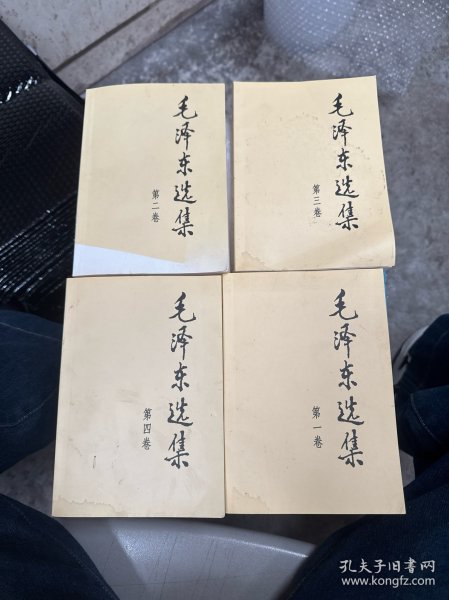 毛泽东选集
第二卷
毛泽东选集
第三卷
毛泽东选集
第四卷
毛泽东选集
第一卷
孔夫子旧书网
www.kongfz.com